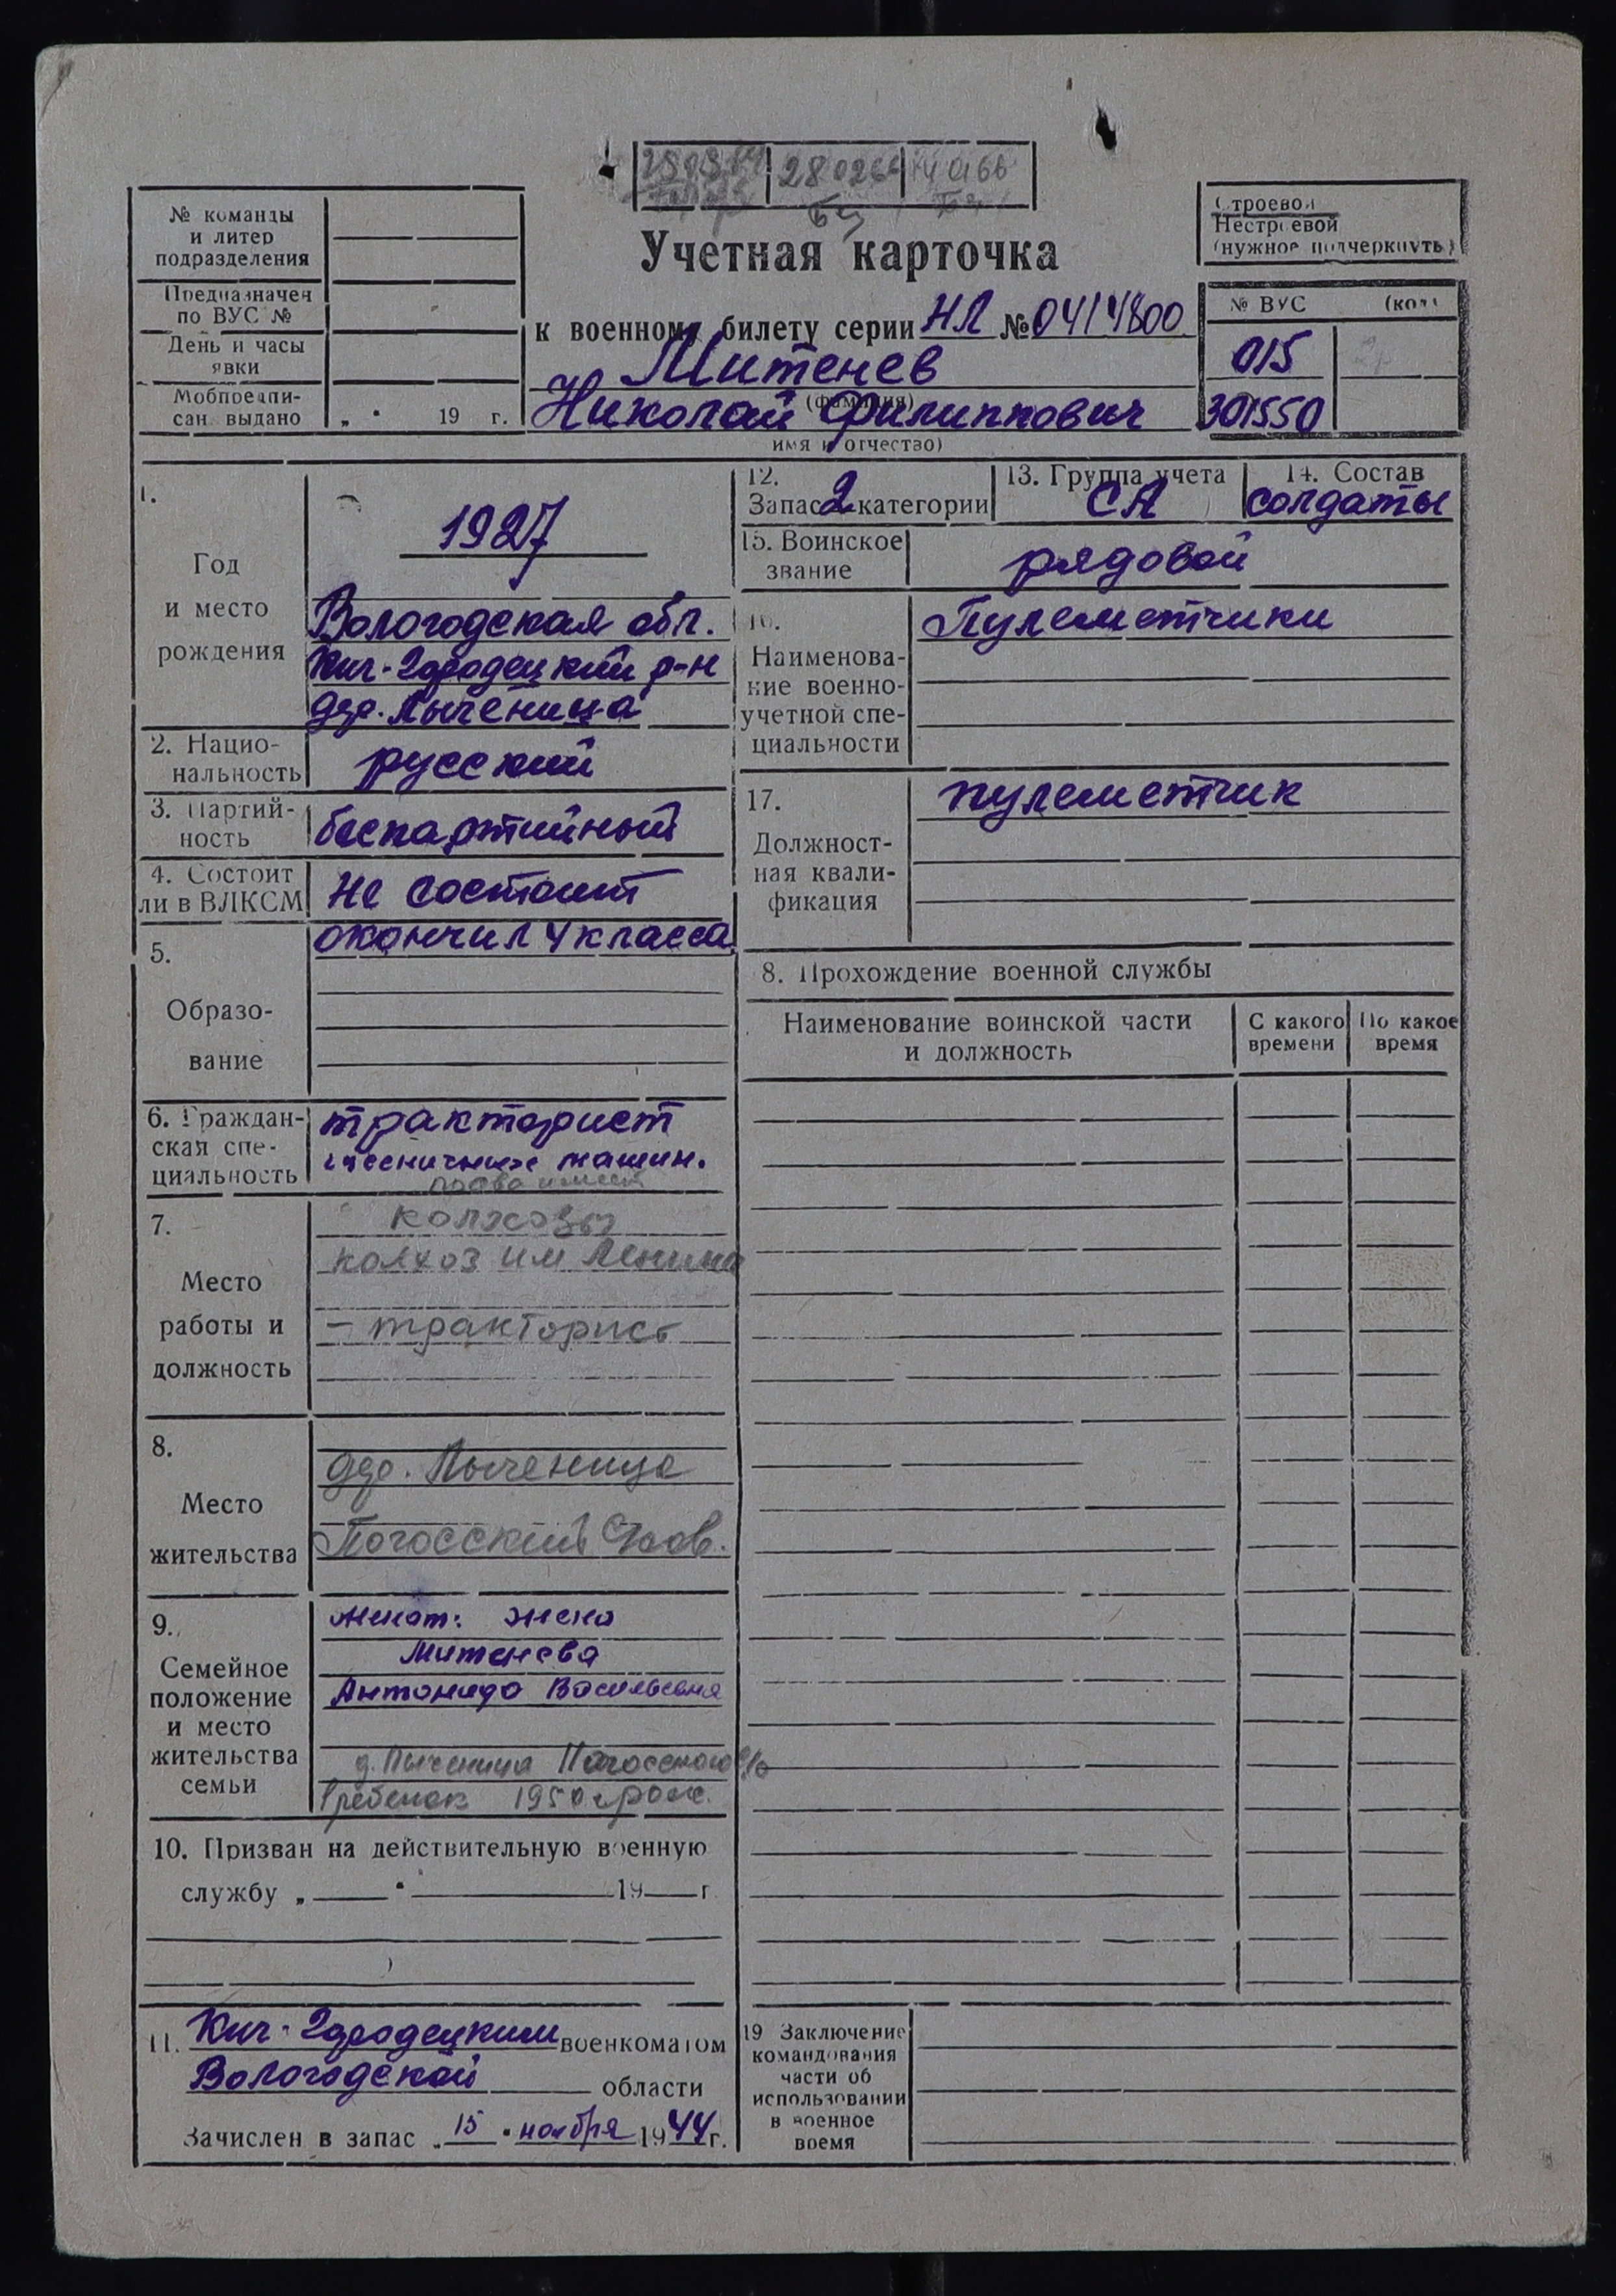 280266
№ команды
и литер
подразделения
Предназначен
по ВУС №
День и часы
явки
Мобпредпи-
сан. выдано
„ " 19 г.
Учетная карточка
к военному билету серии НЛ № 0414800
Митенев
(фамилия)
Николай Филиппович
имя и отчество)
Строевой
Нестроевой
(нужное подчеркнуть)
№ ВУС (код)
015
301550
1.
Год
и место
рождения
1927
Вологодская обл.
Кич-Городецкий р-н
дер. Лыченица
2. Нацио-
нальность
русский
3. Партий-
ность
беспартийный
4. Состоит
ли в ВЛКСМ
не состоит
5.
Образо-
вание
окончил 4 класса
6. Граждан-
ская спе-
циальность
тракторист
гусеничных машин.
права имеет
7.
Место
работы и
должность
колхозы
колхоз им Ленина
- тракторист
8.
Место
жительства
дер. Лыченица
Погосский
9.
Семейное
положение
и место
жительства
семьи
женат: жена
Митенева
Антонида Васильевна
д. Лыченица Погосского с/с
1 ребенок 1950 г рож.
10. Призван на действительную военную
службу „ " 19 г.
11. Кич-Городецким военкоматом
Вологодской области
Зачислен в запас „15" ноября 1944 г.
12.
Запас 2 категории
13. Группа учета
СА
14. Состав
солдаты
15. Воинское
звание
рядовой
16.
Наименова-
ние военно-
учетной спе-
циальности
Пулеметчики
17.
Должност-
ная квали-
фикация
пулеметчик
8. Прохождение военной службы
Наименование воинской части
и должность
С какого
времени
По какое
время
19 Заключение
командования
части об
использовании
в военное
время